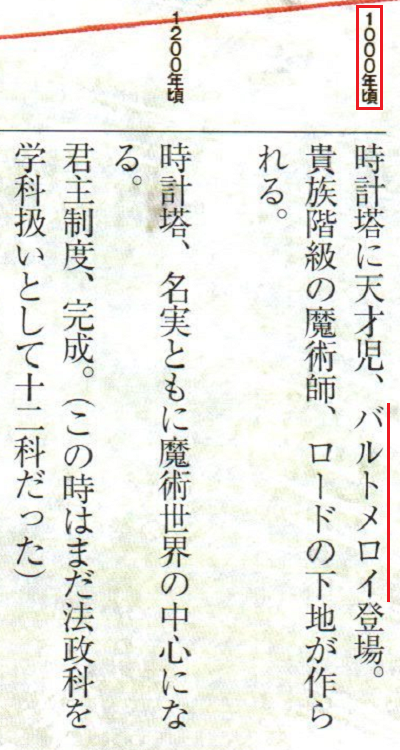 1000年頃
時計塔に天才児、バルトメロイ登場。
貴族階級の魔術師、ロードの下地が作ら
れる。
1200年頃
時計塔、名実ともに魔術世界の中心にな
る。
君主制度、完成。（この時はまだ法政科を
学科扱いとして十二科だった）